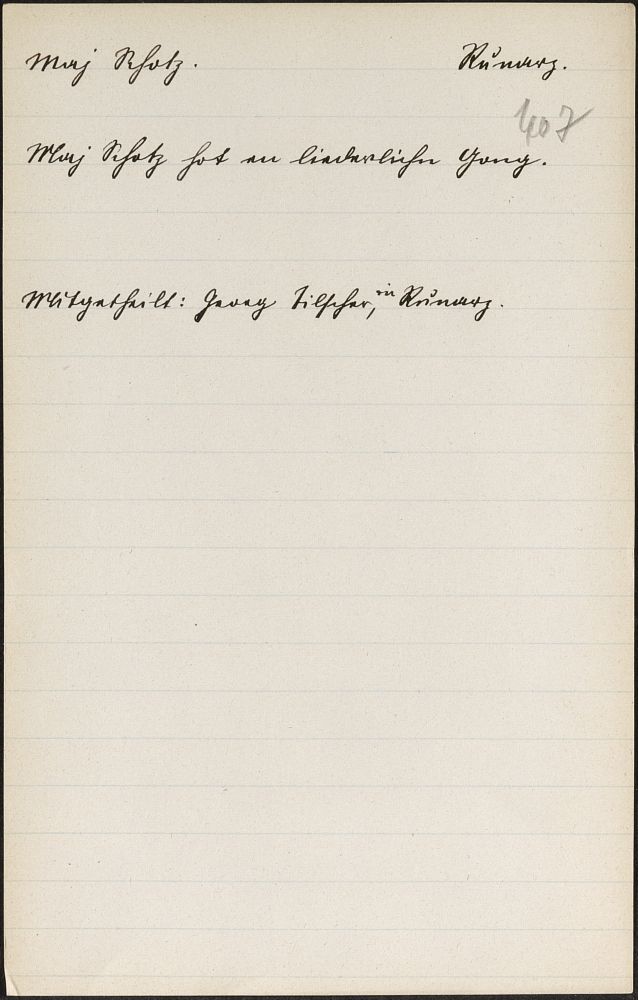 Maj Schotz. Runarz.
407
Maj Schotz hot en liederlichn Gong.
Mitgetheilt: Georg Tilscher, in Runarz.